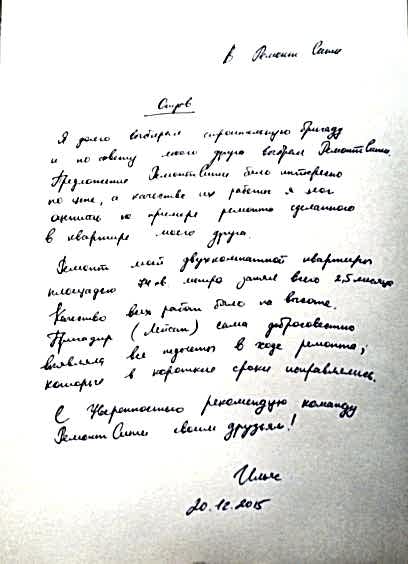 В Ремонт Сити
Отзыв
Я долго выбирал строительную бригаду
и по совету моего друга выбрал РемонтСити.
Предложение РемонтСити было интересно
по цене, а качество их работы я мог
оценить на примере ремонта сделанного
в квартире моего друга.
Ремонт моей двухкомнатной квартиры
площадью 74 кв. метра занял всего 2,5 месяца
Качество всех работ было на высоте.
Бригадир сама добросовестно
выявляла все недочеты в ходе ремонта,
которые в короткие сроки исправлялись.
С уверенностью рекомендую команду
РемонтСити своим друзьям!
20.12.2015